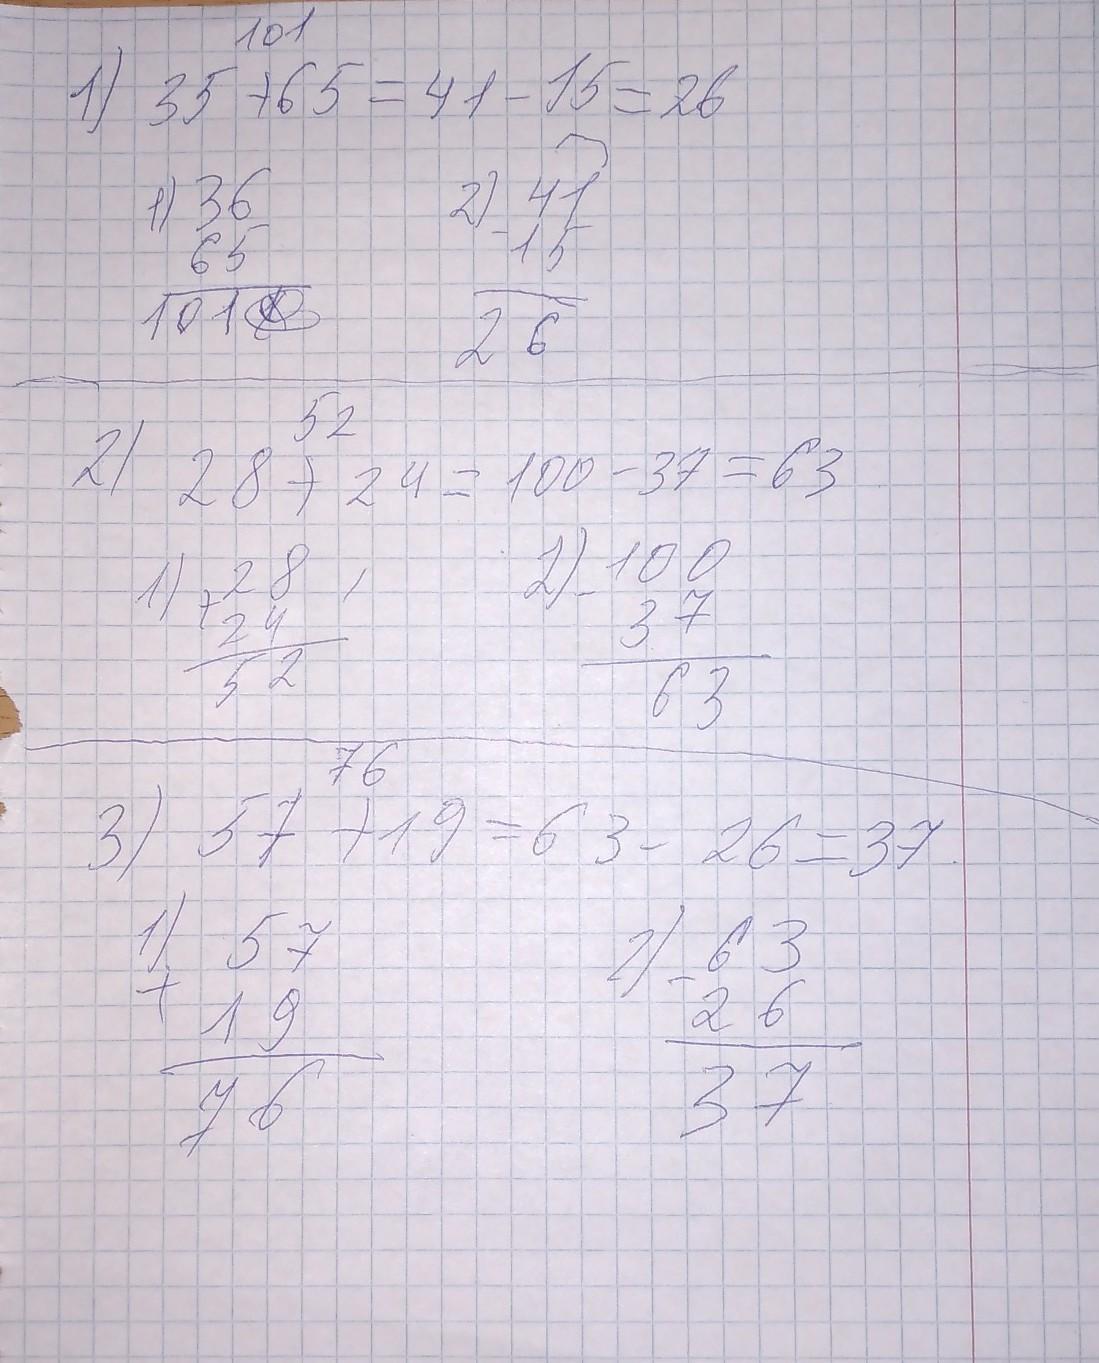 101
1) 35+65=41-15=26
1) 36 2) -41
65 15
101 26
52
2) 28+24=100-37=63
1) +28 2) -100
24 37
52 63
76
3) 57+19=63-26=37.
1) 57 2) -63
+ 19 26
76 37